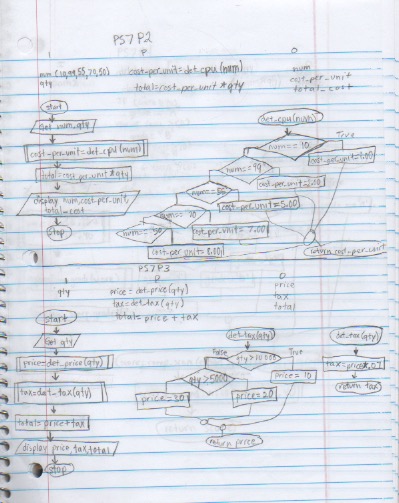 PS7P2
I P O
num (10,99,55,70,50) cost_per_unit=det_cpu(num) num
qty total=cost_per_unit*qty cost_per_unit
total_cost
start
Get num_qty
cost_per_unit=det_cpu(num)
total=cost_per_unit*qty
display num,cost_per_unit,
total_cost
stop
det_cpu(num)
num==10 True
cost_per_unit=1.00
num==99
num==55
cost_per_unit=5.00
num==70
cost_per_unit=7.00
num==50
cost_per_unit=8.00
return cost_per_unit
PS7P3
I P O
qty price=det_price(qty) price
tax=det_tax(qty) tax
total=price+tax total
start
Get qty
price=det_price(qty)
tax=det_tax(qty)
total=price+tax
display price,tax,total
stop
det_tax(qty)
False True
price=10
qty>5000
price=30 price=20
return price
det_tax(qty)
tax=price*.07
return tax